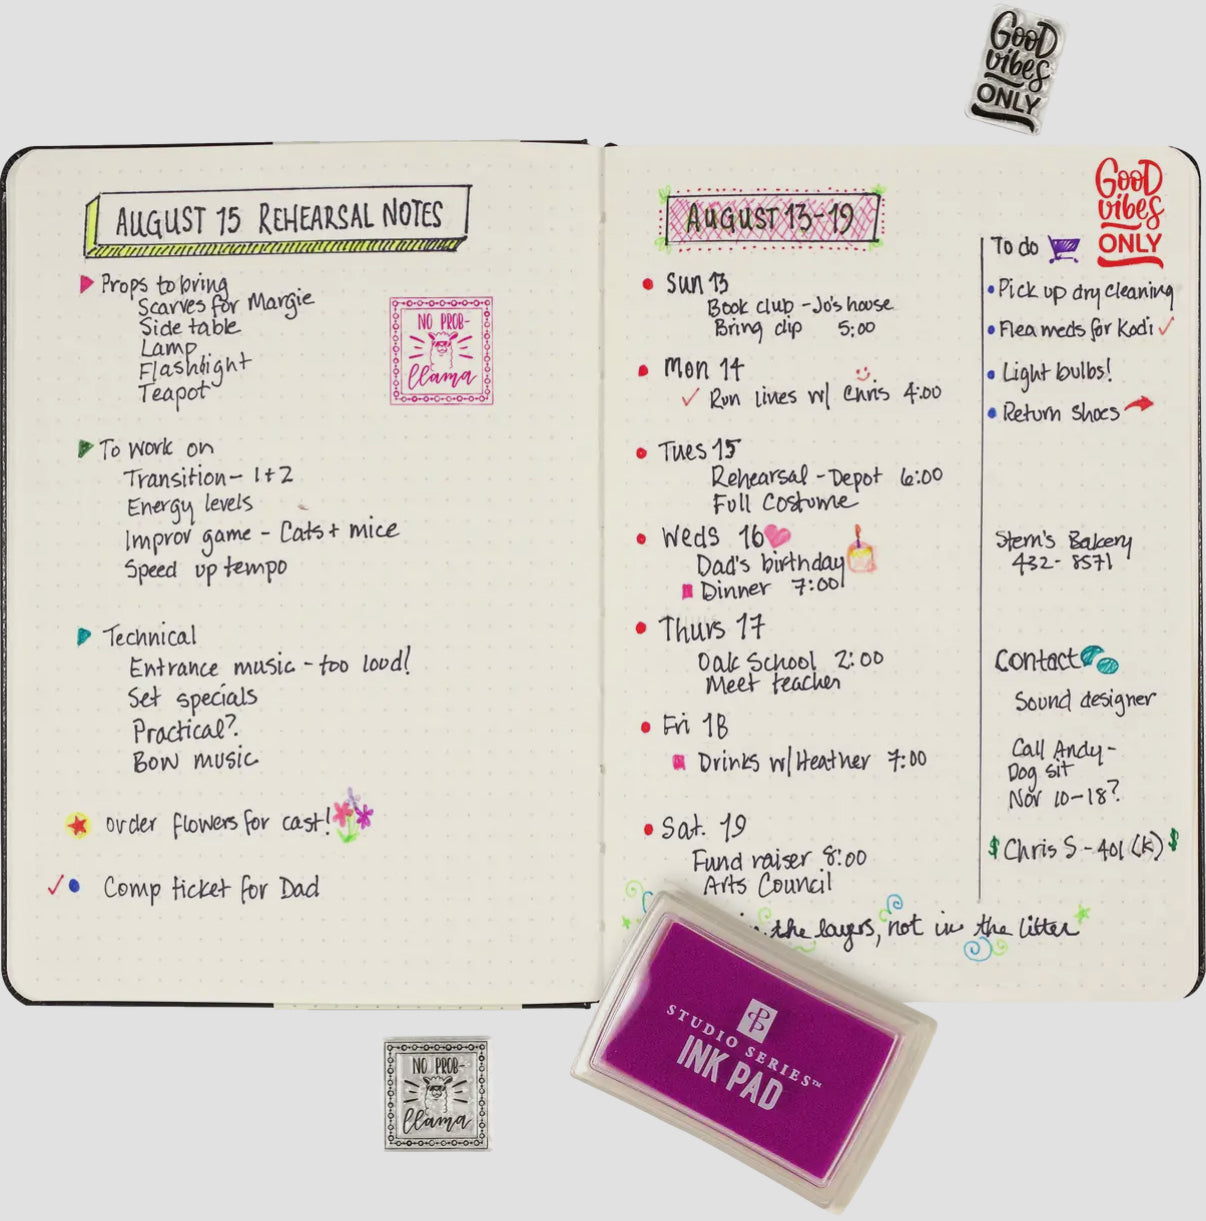 GOOD
vibes
ONLY
AUGUST 15 REHEARSAL NOTES
Props to bring
Scarves for Margie
Side table
Lamp
Flashlight
Teapot
NO PROB-
llama
To work on
Transition - 1+2
Energy levels
Improv game - Cats + mice
Speed up tempo
Technical
Entrance music - too loud!
Set specials
Practical?
Bow music
order flowers for cast!
Comp ticket for Dad
AUGUST 13-19
Sun 13
Book club - Jo's house
Bring dip 5:00
Mon 14
Run lines w/ Chris 4:00
Tues 15
Rehearsal - Depot 6:00
Full Costume
Weds 16
Dad's birthday
Dinner 7:00
Thurs 17
Oak School 2:00
Meet teacher
Fri 18
Drinks w/ Heather 7:00
Sat. 19
Fund raiser 8:00
Arts Council
the layers, not in the litter
GOOD
vibes
ONLY
To do
Pick up dry cleaning
Flea meds for Kodi
Light bulbs!
Return shoes
Stern's Bakery
432-8571
Contact
Sound designer
Call Andy -
Dog sit
Nov 10-18?
$ Chris S - 401(K) $
STUDIO SERIES™
INK PAD
NO PROB-
llama